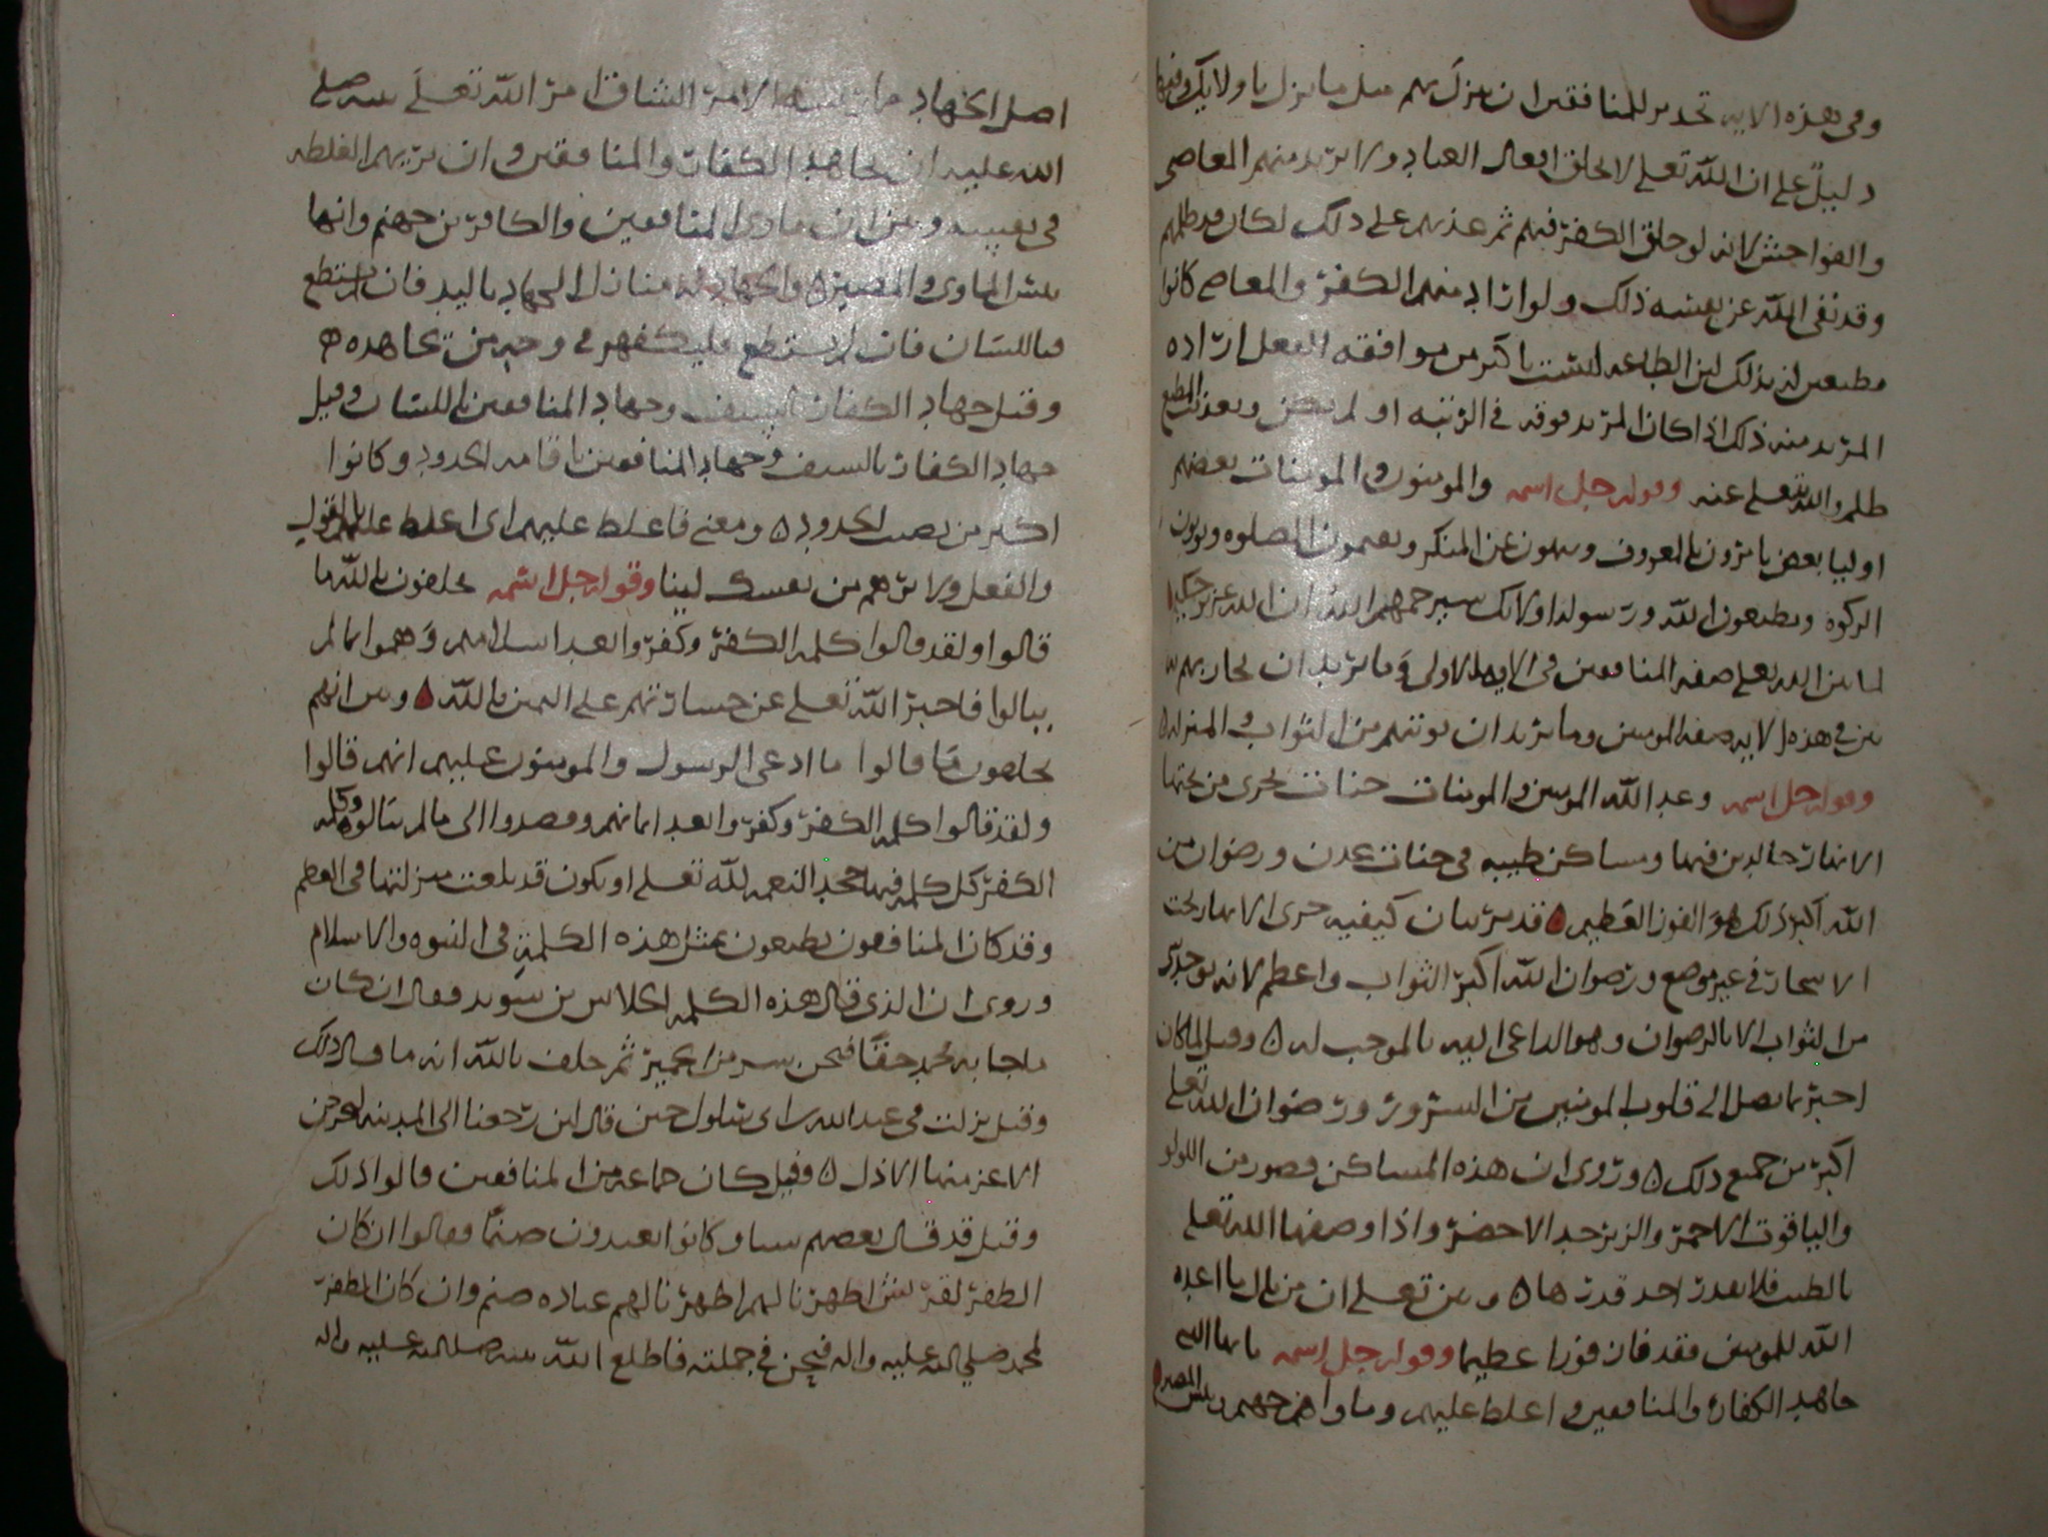 وفي هذه الايه تحدير للمنافقين ان ينزل بهم مثل ما نزل باولايك وفيها
دليل على ان الله تعلى لا يخلق افعال العباد ولا يريد منهم المعاصي
والفواحش لانه لو خلق الكفر فيهم ثم عذبهم على ذلك لكان قد ظلمهم
وقد نفى الله عن نفسه ذلك ولو اراد منهم الكفر والمعاصي كانوا
مطيعين له بذلك لان الطاعه ليست باكثر من موافقه الفعل اراده
المريد منه ذلك اذا كان المريد فوقه في الرتبه او لم يكن وتعذيب المطيع
ظلم والله يتعلى عنه وقوله جل اسمه والمومنون والمومنات بعضهم
اوليا بعض يامرون بالمعروف وينهون عن المنكر ويقيمون الصلوه ويوتون
الزكوه ويطيعون الله ورسوله اولايك سيرحمهم الله ان الله عزيز حكيم
لما بين الله تعلى صفه المنافقين في الايه الاولى وما يريد ان يجازيهم به
بين في هذه الايه صفه المومنين وما يريد ان يوتيهم من الثواب والمنزله
وقوله جل اسمه وعد الله المومنين والمومنات جنات تجري من تحتها
الانهار خالدين فيها ومساكن طيبه في جنات عدن ورضوان من
الله اكبر ذلك هو الفوز العظيم قد مر بيان كيفيه جري الانهار تحت
الاشجار في غير موضع ورضوان الله اكبر الثواب واعظم لانه يوجد
من الثواب الا بالرضوان وهو الداعي اليه بالموجب له وقيل لما كان
اخبر بما يصل الى قلوب المومنين من السرور ورضوان الله تعلى
اكبر من جميع ذلك وروي ان هذه المساكن قصور من اللولو
والياقوت الاحمر والزبرجد الاخضر واذا وصفها الله تعلى
بالطيب فلا يقدر احد قدرها وبين تعلى ان من نال ما اعده
الله للمومنين فقد فاز فوزا عظيما وقوله جل اسمه يايها النبي
جاهد الكفار والمنافقين واغلظ عليهم وماواهم جهنم وبيس المصير
اصل الجهاد الامر الشاق امر الله تعلى نبيه صلى
الله عليه ان يجاهد الكفار والمنافقين وان يريهم الغلظه
في نفسه وبين ان ماوى المنافقين والكافرين جهنم وانها
بيس الماوى والمصير والجهاد له منازل الجهاد باليد فان لم يستطع
فباللسان فان لم يستطع فليكفهر في وجه من يجاهده
وقيل جهاد الكفار بالسيف وجهاد المنافقين باللسان وقيل
جهاد الكفار بالسيف وجهاد المنافقين باقامه الحدود وكانوا
اكثر من يصيب الحدود ومعنى فاغلظ عليهم اي اغلظ عليهم بالقول
والفعل ولا ترهم من نفسك لينا وقوله جل اسمه يحلفون بالله ما
قالوا ولقد قالوا كلمه الكفر وكفروا بعد اسلامهم وهموا بما لم
ينالوا فاخبر الله تعلى عن جسارتهم على اليمين بالله وبين انهم
يحلفون ما قالوا ما ادعى الرسول والمومنون عليهم انهم قالوا
ولقد قالوا كلمه الكفر وكفروا بعد ايمانهم وقصدوا الى ما لم ينالوه وكلمه
الكفر كل كلمه فيها جحد النعمه لله تعلى او يكون قد بلغت منزلتها في العظم
وقد كان المنافقون يطعنون بمثل هذه الكلمة في النبوه والاسلام
وروي ان الذي قال هذه الكلمه الجلاس بن سويد فقال ان كان
ما جا به محمد حقا فنحن شر من الحمير ثم حلف بالله انه ما قال ذلك
وقيل نزلت في عبد الله بن ابي سلول حين قال لين رجعنا الى المدينه ليخرجن
الاعز منها الاذل وقيل كان جماعه من المنافقين قالوا ذلك
وقيل قد قال بعضهم وكانوا يعبدون صنما فقالوا ان كان
الظفر لقريش اظهرنا لهم اظهرنا لهم عباده صنم وان كان الظفر
لمحمد صلى الله عليه واله فنحن في جملته فاطلع الله نبيه صلى الله عليه واله